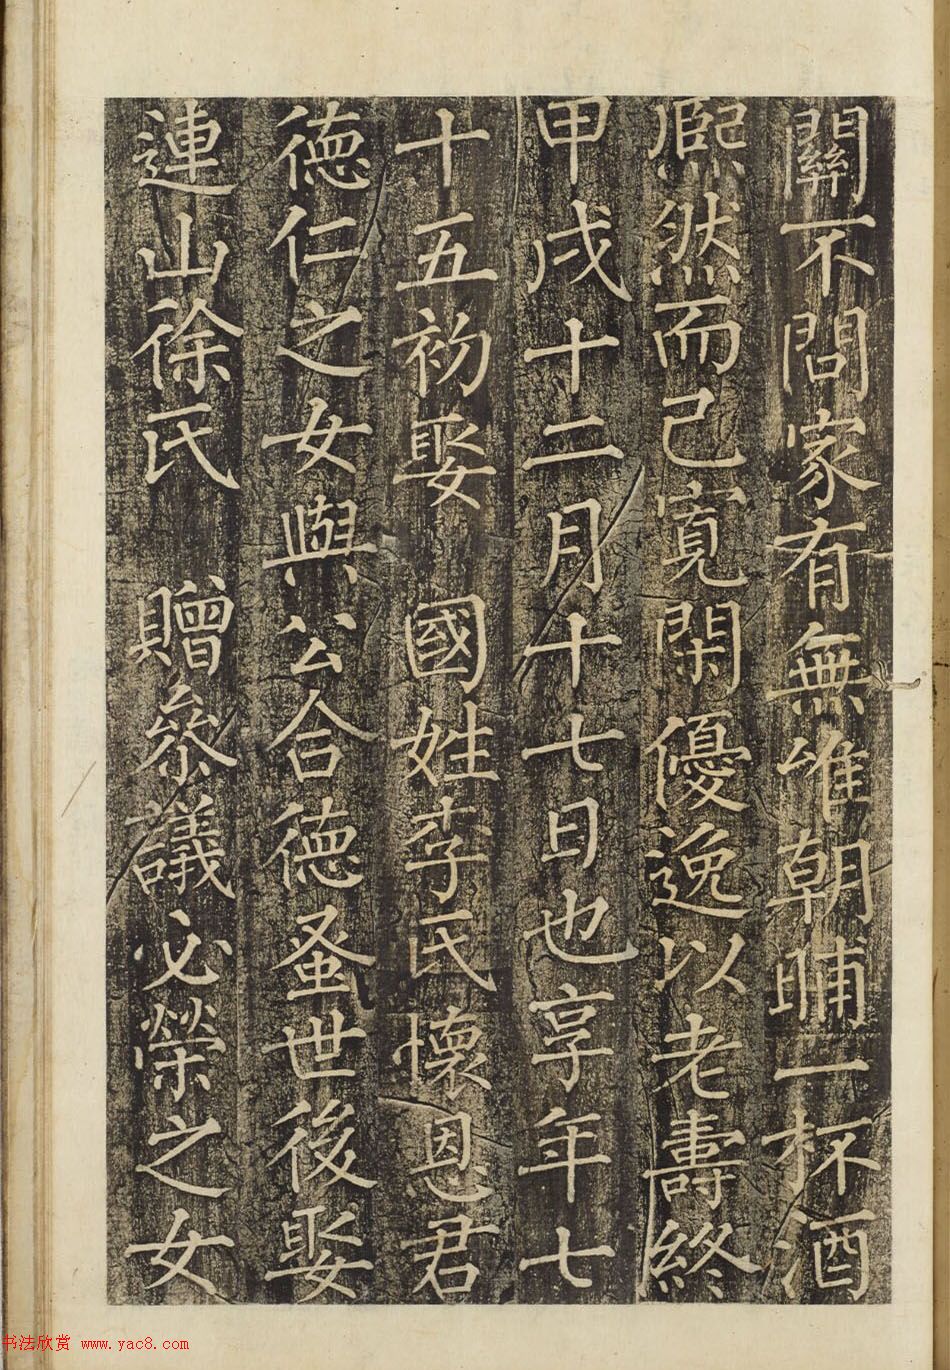 關不問家有無唯朝晡一杯酒
熈然而已寛閑優逸以老壽終
甲戌十二月十七日也享年七
十五初娶 國姓李氏懷恩君
德仁之女與公合德蚤世後娶
連山徐氏 贈叅議必榮之女
书法欣赏 www.yac8.com